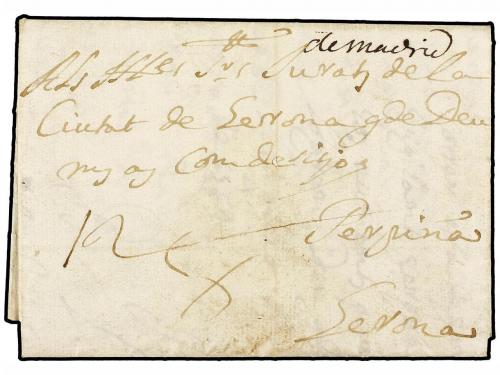 de madrid
Als Illes Srs Jurats de la
Ciutat de Gerona q de Deu
Com desijos
Perpiña
Gerona